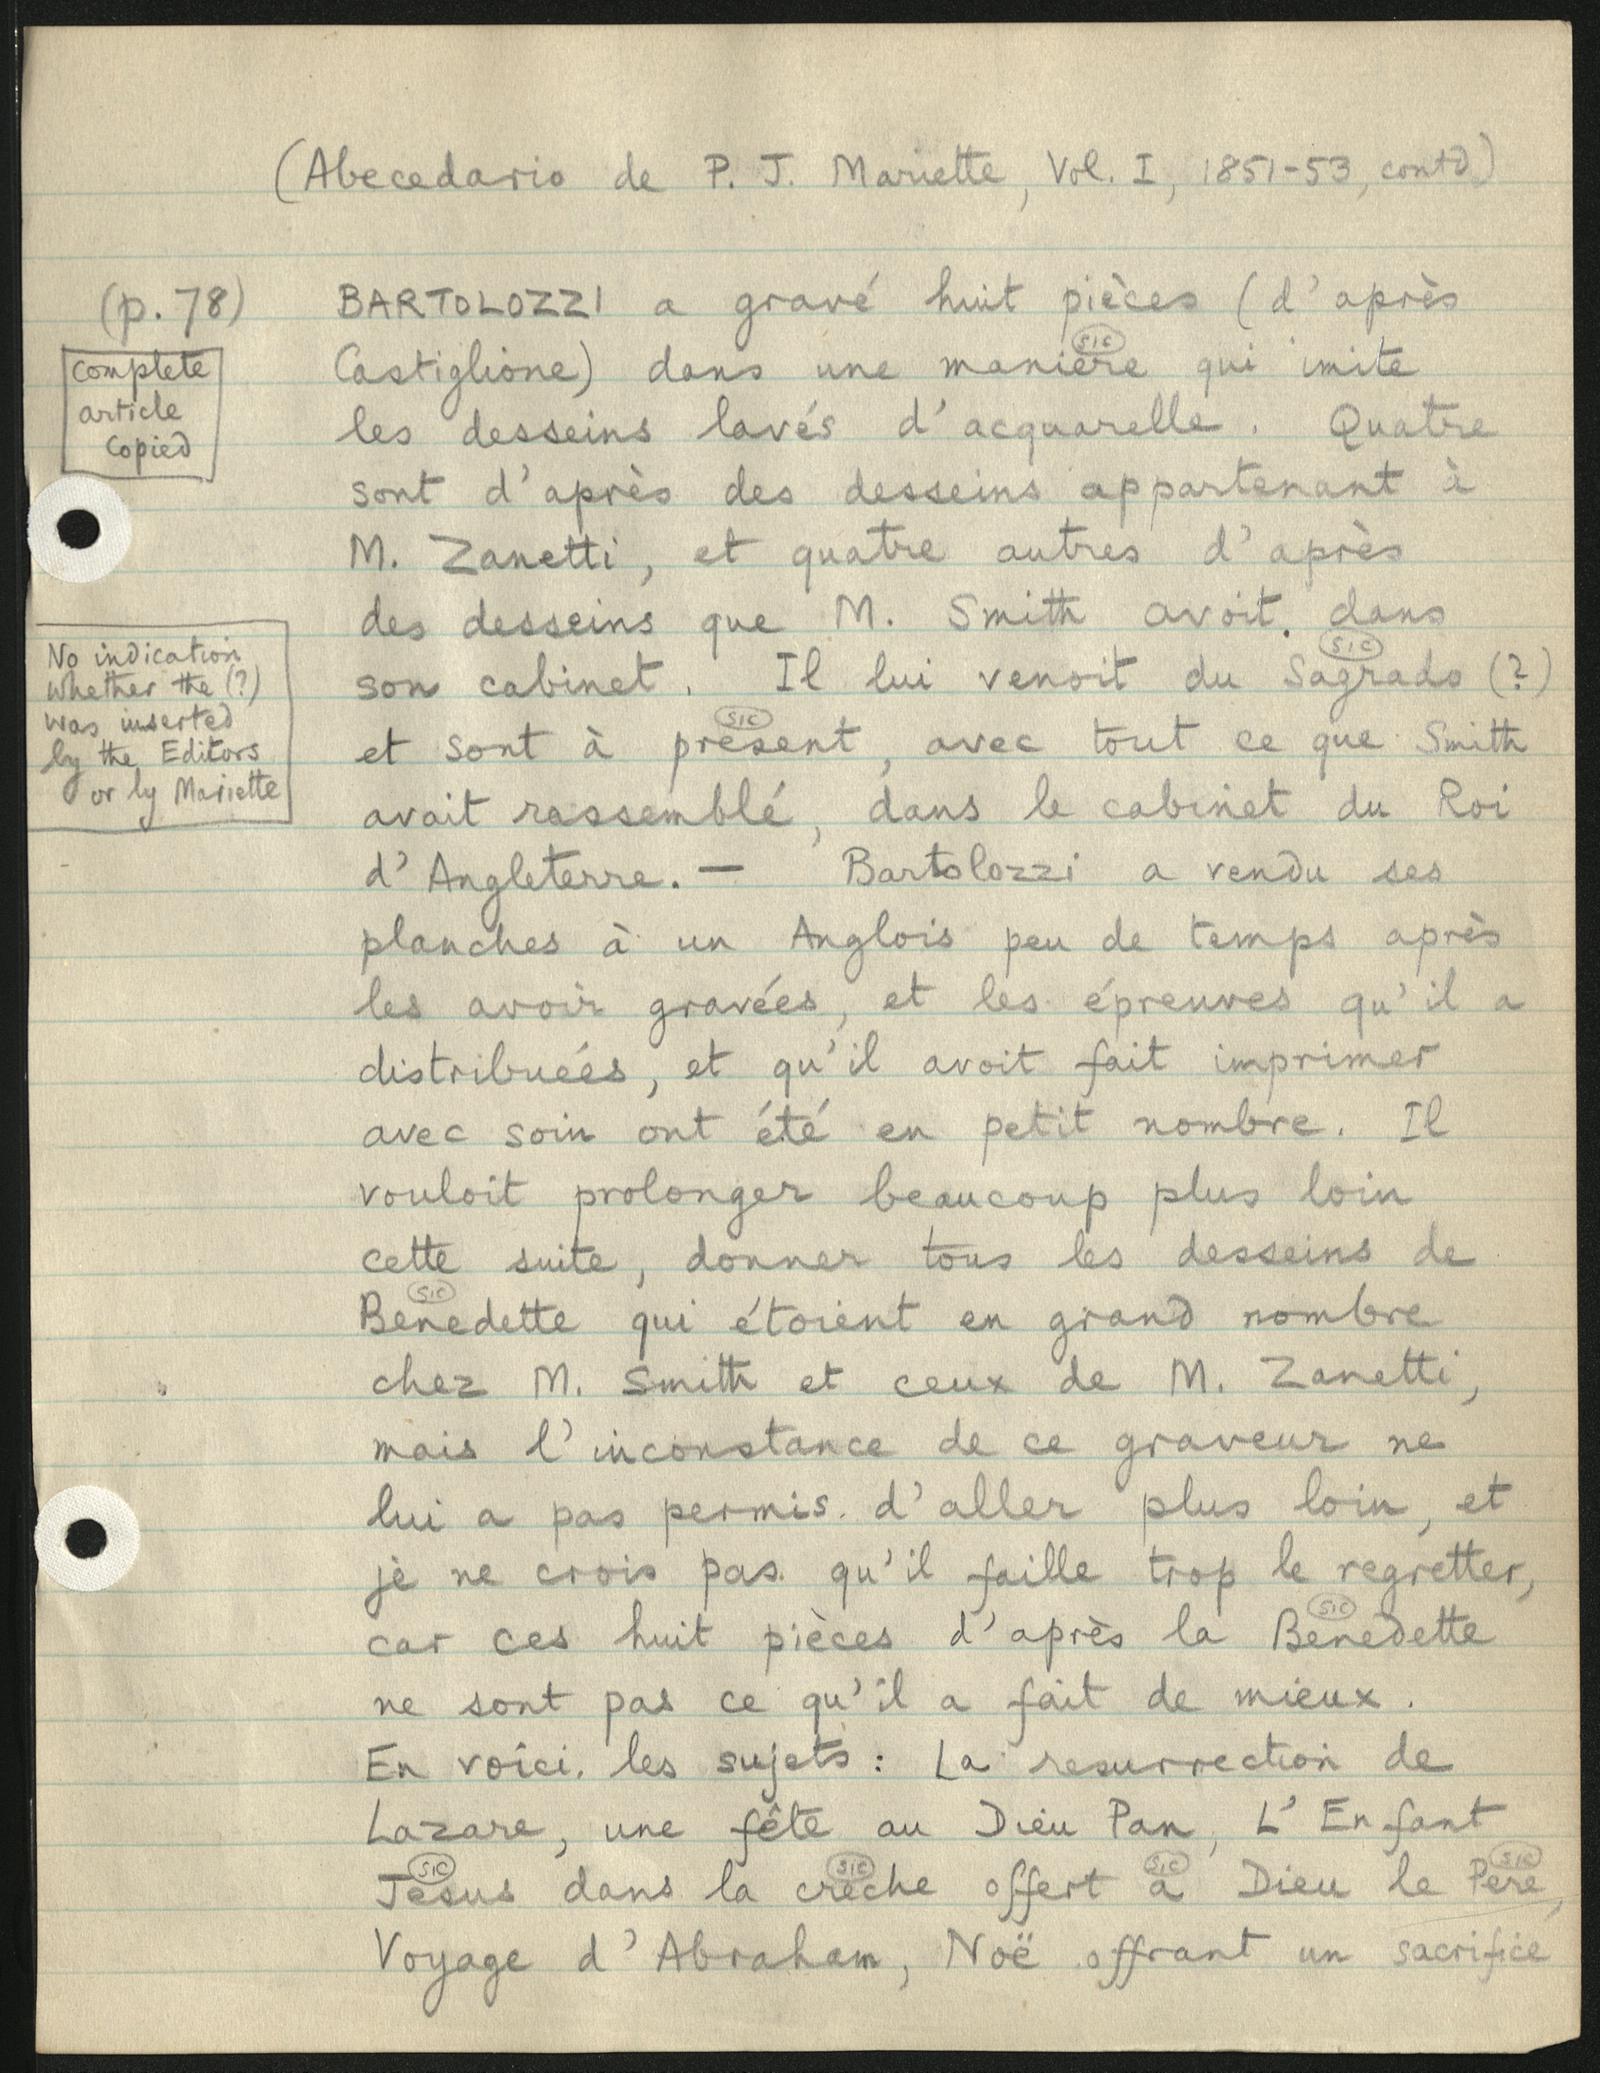 (Abecedario de P. J. Mariette, Vol. I, 1851-53, contd)
(p. 78)
complete
article
copied
BARTOLOZZI a gravé huit pièces (d'après
sic
Castiglione) dans une maniere qui imite
les desseins lavés d'acquarelle. Quatre
sont d'après des desseins appartenant à
M. Zanetti, et quatre autres d'après
des desseins que M. Smith avoit dans
sic
son cabinet. Il lui venoit du Sagrado (?)
No indication
whether the (?)
was inserted
by the Editors
or by Mariette
sic
et sont à present, avec tout ce que Smith
avait rassemblé, dans le cabinet du Roi
d'Angleterre. — Bartolozzi a vendu ses
planches à un Anglois peu de temps après
les avoir gravées, et les épreuves qu'il a
distribuées, et qu'il avoit fait imprimer
avec soin ont été en petit nombre. Il
vouloit prolonger beaucoup plus loin
cette suite, donner tous les desseins de
sic
Benedette qui étoient en grand nombre
chez M. Smith et ceux de M. Zanetti,
mais l'inconstance de ce graveur ne
lui a pas permis d'aller plus loin, et
je ne crois pas qu'il faille trop le regretter,
sic
car ces huit pièces d'après la Benedette
ne sont pas ce qu'il a fait de mieux.
En voici les sujets: La resurrection de
Lazare, une fête au Dieu Pan, L'Enfant
sic sic sic sic
Jesus dans la creche offert a Dieu le Pere,
Voyage d'Abraham, Noë offrant un sacrifice